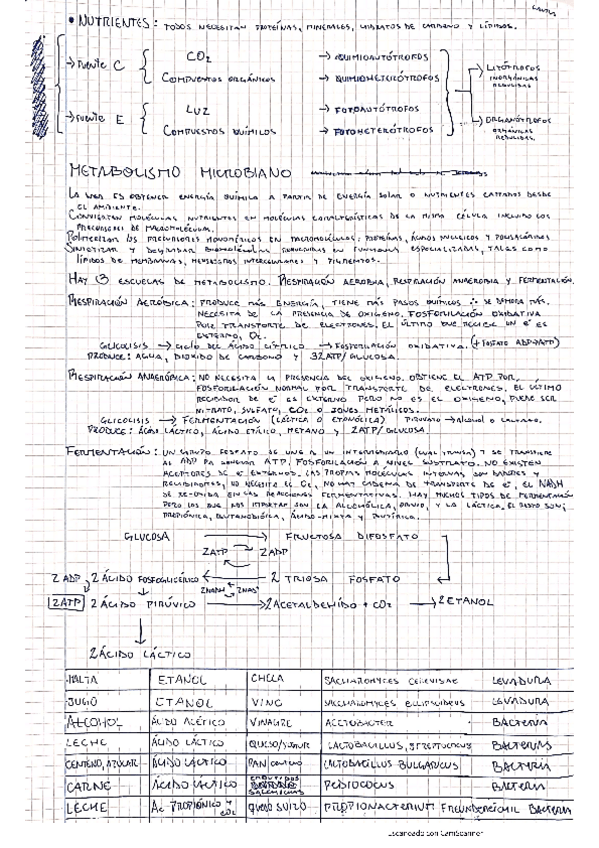 • NUTRIENTES: TODOS NECESITAN PROTEÍNAS, MINERALES, HIDRATOS DE CARBONO Y LÍPIDOS.
→ FUENTE C
CO2 → QUIMIOAUTÓTROFOS
COMPUESTOS ORGÁNICOS → QUIMIOHETERÓTROFOS
→ LITÓTROFOS
INORGÁNICAS
REDUCIDAS
→ FUENTE E
LUZ → FOTOAUTÓTROFOS
COMPUESTOS QUÍMICOS → FOTOHETERÓTROFOS
→ ORGANÓTROFOS
ORGÁNICAS
REDUCIDAS.
METABOLISMO MICROBIANO
LA ES OBTENER ENERGÍA QUÍMICA A PARTIR DE ENERGÍA SOLAR O NUTRIENTES CAPTADOS DESDE
EL AMBIENTE.
CONVIERTEN MOLÉCULAS NUTRIENTES EN MOLÉCULAS CARACTERÍSTICAS DE LA MISMA CÉLULA INCLUIDO LOS
PRECURSORES DE MACROMOLÉCULAR.
POLIMERIZAR LOS PRECURSORES MONOMÉRICOS EN MACROMOLÉCULAS: PROTEÍNAS, ÁCIDOS NUCLEICOS Y POLISACÁRIDOS
SINTETIZAR Y DEGRADAR BIOMOLÉCULAS REQUERIDAS EN FUNCIONES ESPECIALIZADAS, TALES COMO
LÍPIDOS DE MEMBRANAS, MENSAJEROS INTERCELULARES Y PIGMENTOS.
HAY 3 ESCUELAS DE METABOLISMO. RESPIRACIÓN AEROBIA, RESPIRACIÓN ANAEROBIA Y FERMENTACIÓN.
RESPIRACIÓN AERÓBICA: PRODUCE MÁS ENERGÍA, TIENE MÁS PASOS QUÍMICOS ∴ SE DEMORA MÁS.
NECESITA DE LA PRESENCIA DE OXÍGENO. FOSFORILACIÓN OXIDATIVA
POR TRANSPORTE DE ELECTRONES. EL ÚLTIMO QUE RECIBE UN e- ES
EXTERNO, O2.
GLICOLISIS → CICLO DEL ÁCIDO CÍTRICO → FOSFORILACIÓN OXIDATIVA. (+ FOSFATO ADP→ATP)
PRODUCE: AGUA, DIOXIDO DE CARBONO Y 32ATP/GLUCOSA.
RESPIRACIÓN ANAERÓBICA: NO NECESITA LA PRESENCIA DEL OXÍGENO. OBTIENE EL ATP POR
FOSFORILACIÓN NORMAL POR TRANSPORTE DE ELECTRONES. EL ÚLTIMO
RECIBIDOR DE e- ES EXTERNO PERO NO ES EL OXIGENO, PUEDE SER
NITRATO, SULFATO, CO2 O IONES METÁLICOS.
GLICOLISIS → FERMENTACIÓN (LÁCTICA O ETANÓLICA) PIRUVATO → ALCOHOL O LACTATO.
PRODUCE: ÁCIDO LÁCTICO, ÁCIDO ETÍLICO, METANO Y 2ATP/GLUCOSA
FERMENTACIÓN: UN GRUPO FOSFATO SE UNE A UN INTERMEDIARIO Y SE TRANSFIERE
AL ADP PA ATP. FOSFORILACIÓN A NIVEL SUSTRATO. NO EXISTEN
ACEPTORES DE e- EXTERNOS. LAS PROPIAS MOLÉCULAS INTERNAS SON DADORES Y
RECIBIDORES, NO NECESITA EL O2, NO HAY CADENA DE TRANSPORTE DE e-, EL NADH
SE RE-OXIDA EN LAS REACCIONES FERMENTATIVAS. HAY MUCHOS TIPOS DE FERMENTACIÓN
PERO LOS QUE NOS IMPORTAN SON LA ALCOHÓLICA, Y LA LÁCTICA. EL RESTO SON:
PROPIÓNICA, BUTANODIÓLICA, ÁCIDO-MIXTA Y BUTÍRICA.
GLUCOSA → FRUCTOSA DIFOSFATO
2ATP 2ADP
2 ADP 2 ÁCIDO FOSFOGLICÉRICO ← 2 TRIOSA FOSFATO
2NADH 2NAD+
2ATP 2 ÁCIDO PIRÚVICO → 2 ACETALDEHÍDO + CO2 → 2 ETANOL
2 ÁCIDO LÁCTICO
MALTA ETANOL CHELA SACCHAROMYCES CEREVISAE LEVADURA
JUGO ETANOL VINO SACCHAROMYCES ELLIPSOIDEUS LEVADURA
ALCOHOL ÁCIDO ACÉTICO VINAGRE ACETOBACTER BACTERIA
LECHE ÁCIDO LÁCTICO QUESO/YOGURT LACTOBACILLUS, STREPTOCOCCUS BACTERIAS
CENTENO, AZUCAR ÁCIDO LÁCTICO PAN LACTOBACILLUS BULGARICUS BACTERIA
CARNE ÁCIDO LÁCTICO EMBUTIDOS SALCHICHAS PEDIOCOCUS BACTERIA
LECHE AC PROPIÓNICO + CO2 QUESO SUIZO PROPIONACTERIUM FREUNDEREICHII BACTERIA
Escaneado con CamScanner